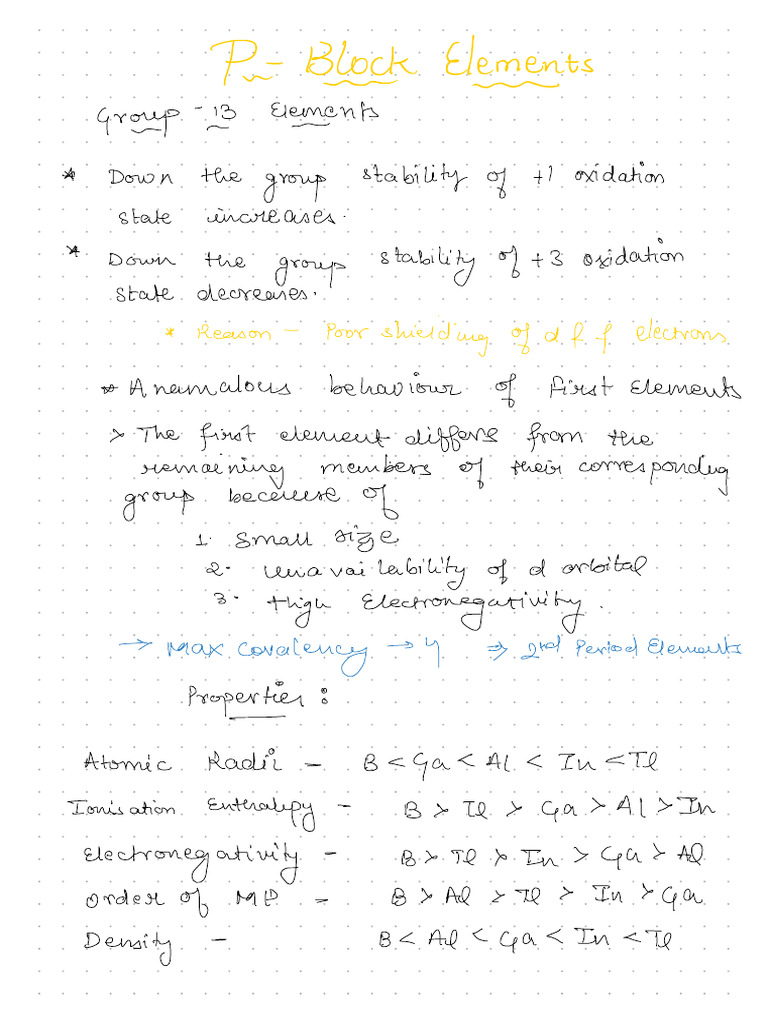 P - Block Elements
Group - 13 Elements
* Down the group stability of +1 oxidation
state increases.
* Down the group stability of +3 oxidation
state decreases.
* Reason - Poor shielding of d & f electrons
* Anamalous behaviour of first elements
> The first element differs from the
remaining members of their corresponding
group because of
1. Small size
2. Unavailability of d orbital
3. High Electronegativity.
→ Max covalency → 4 ⇒ 2nd Period Elements
Properties :
Atomic Radii - B < Ga < Al < In < Tl
Ionisation Enthalepy - B > Tl > Ga > Al > In
Electronegativity - B > Tl > In > Ga > Al
Order of MP - B > Al > Tl > In > Ga
Density - B < Al < Ga < In < Tl